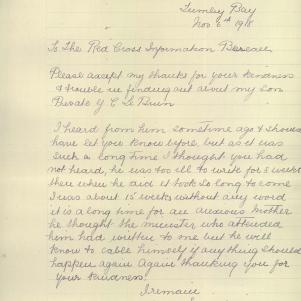 Tumley Bay
Nov. 6th 1918
To The Red Cross Information Bereau
Please accept my thanks for your kindness
& trouble in finding out about my son
Private Y C Le Brun
I heard from him sometime ago & should
have let you know before, but as it was
such a long time I thought you had
not heard, he was too ill to write for 5 weeks
then when he did it took so long to come
I was about 15 weeks without any word
it is a long time for an anxious Mother
he thought the minister who attended
him had written to me but he will
know to cable himself if anything should
happen again Again thanking you for
your kindness.
I remain